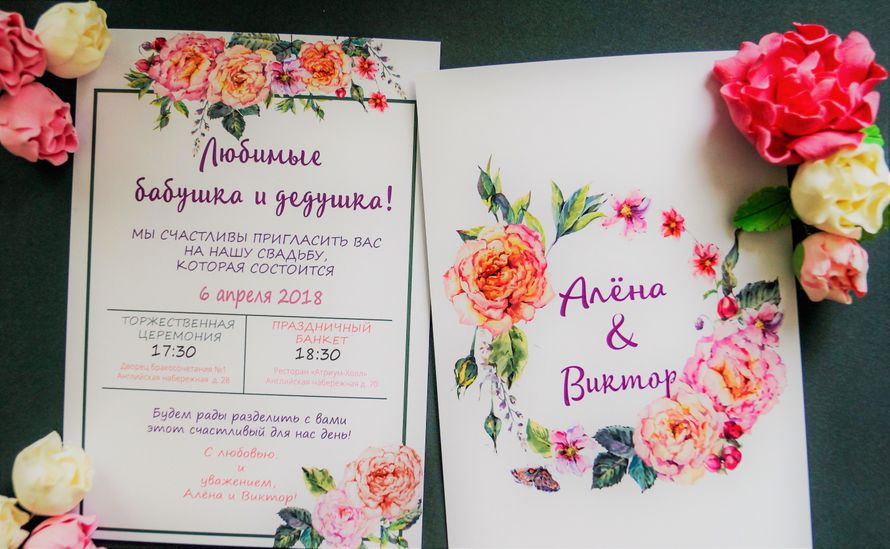 Любимые
бабушка и дедушка!
МЫ СЧАСТЛИВЫ ПРИГЛАСИТЬ ВАС
НА НАШУ СВАДЬБУ,
КОТОРАЯ СОСТОИТСЯ
6 апреля 2018
ТОРЖЕСТВЕННАЯ
ЦЕРЕМОНИЯ
17:30
Дворец бракосочетания №1
Английская набережная д. 28
ПРАЗДНИЧНЫЙ
БАНКЕТ
18:30
Ресторан «Атриум-Холл»
Английская набережная д. 70
Будем рады разделить с вами
этот счастливый для нас день!
С любовью
и
уважением,
Алёна и Виктор!
Алёна
&
Виктор